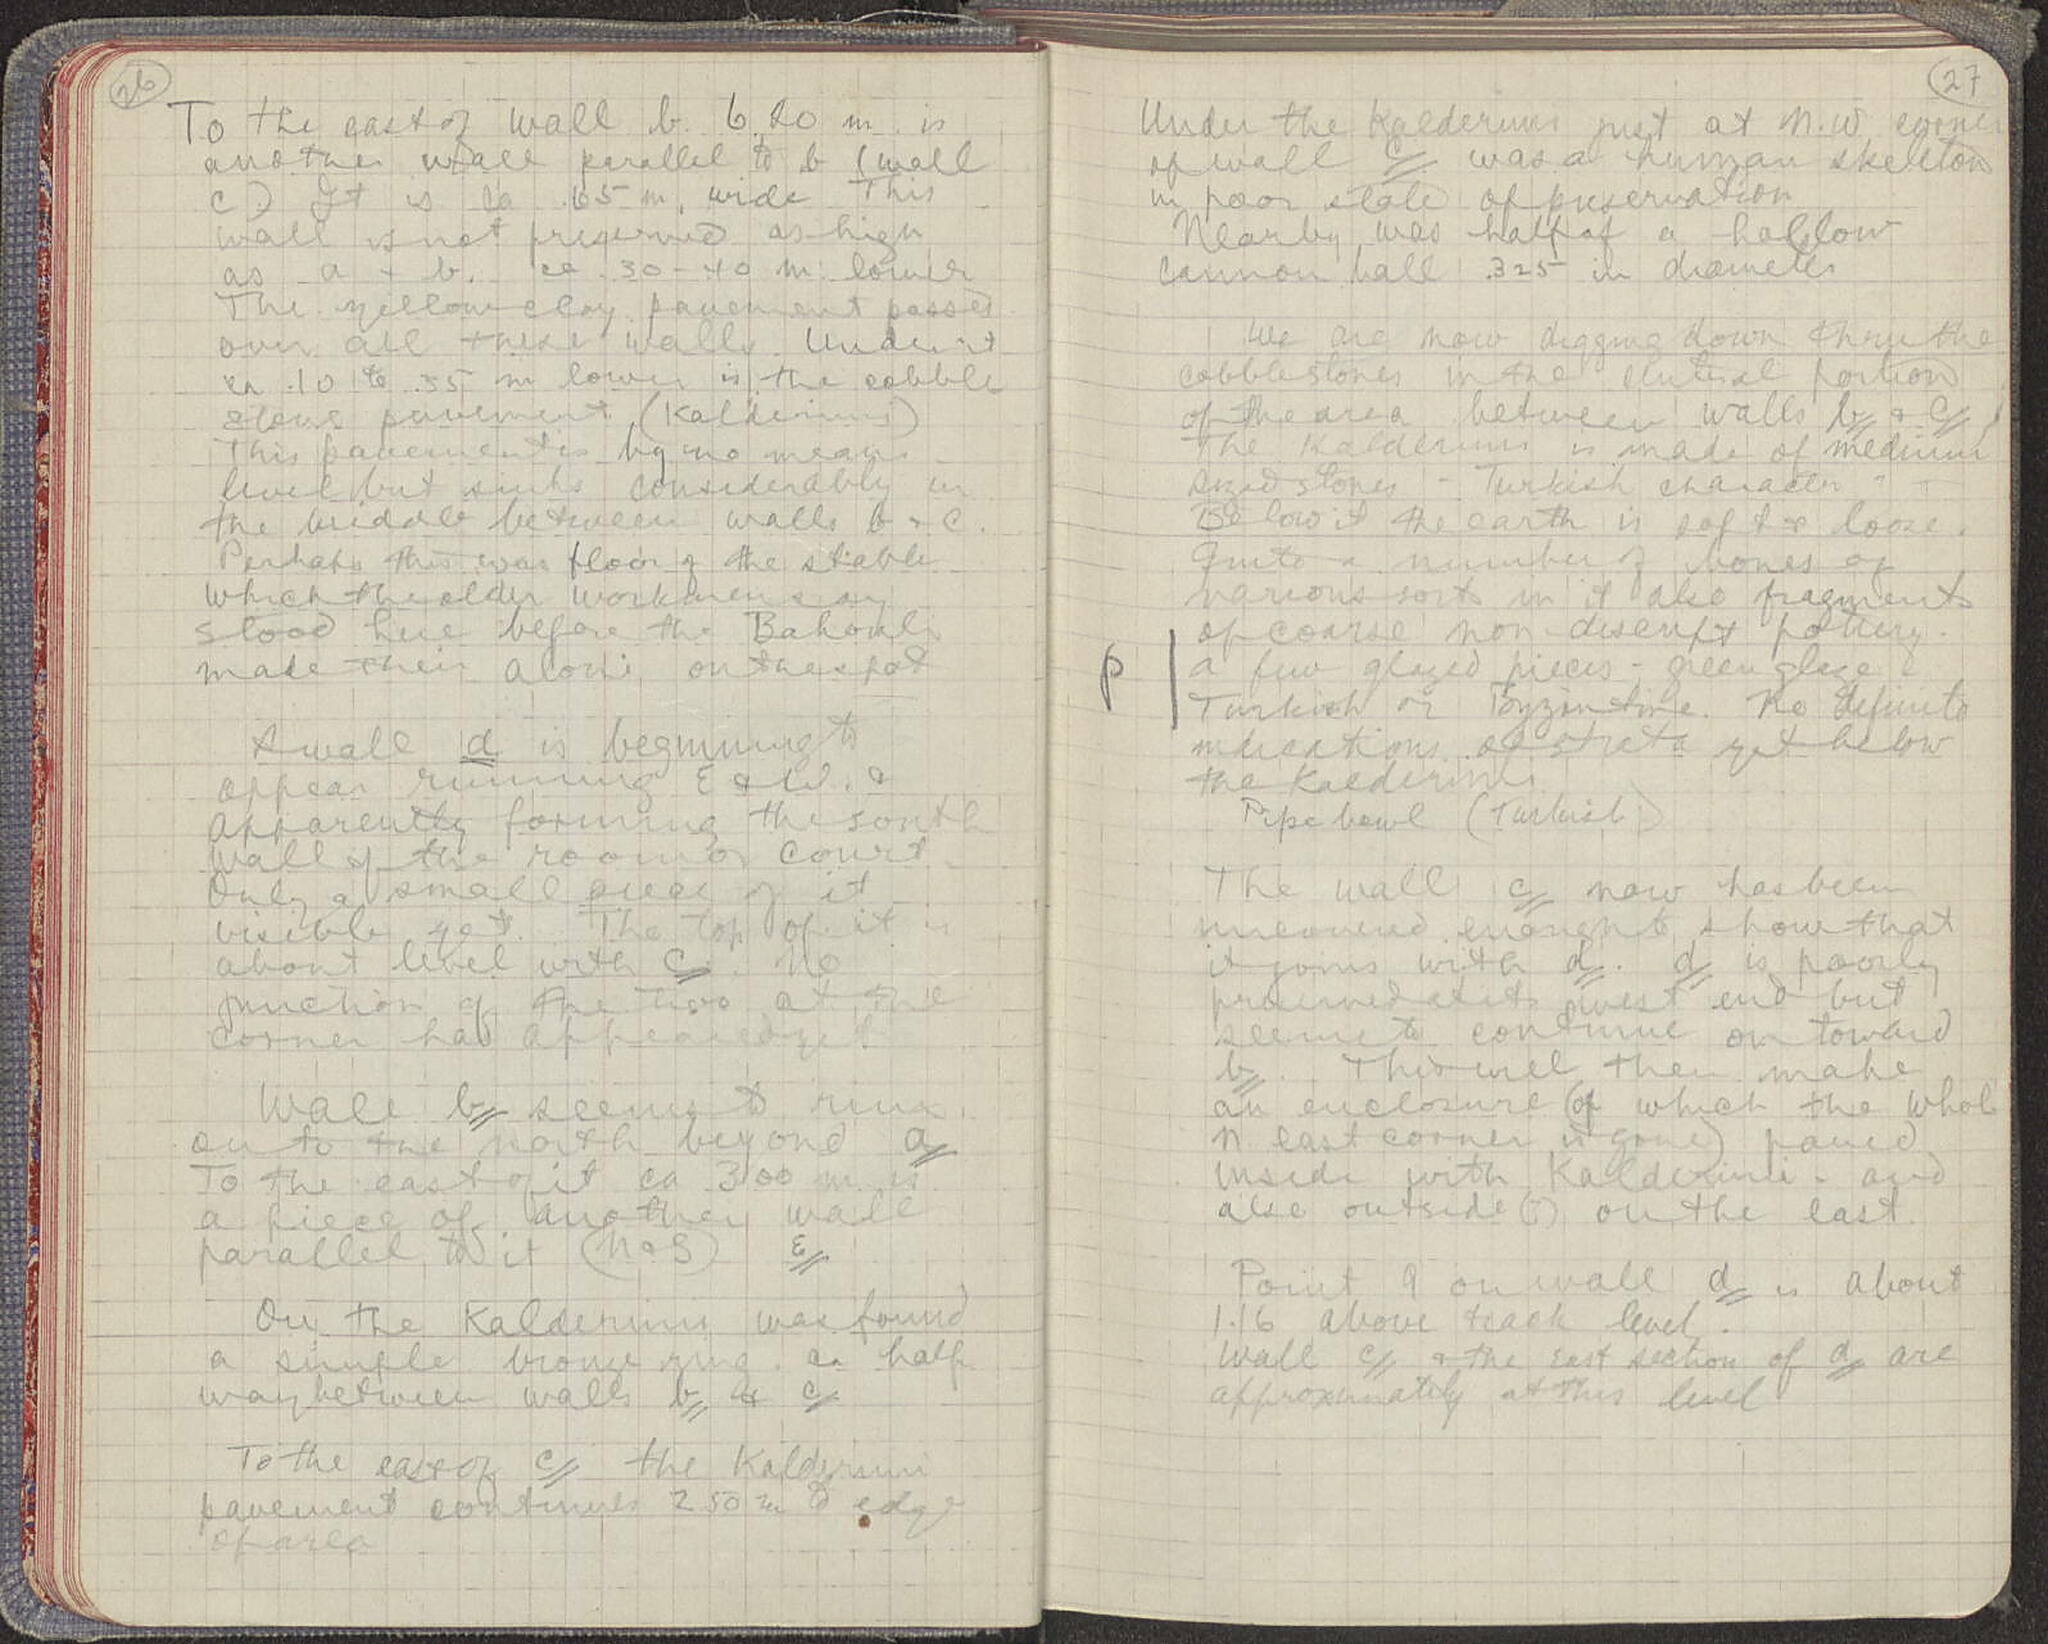 26
To the east of wall b. 6.20 m is
another wall parallel to b (wall
c.) It is ca .65 m. wide This
wall is not preserved as high
as a + b. ca .30-40 m. lower
The yellow clay pavement passes
over all these walls. Under it
ca .10 to .35 m lower is the cobble
stone pavement (Kalderimi)
This pavement is by no means
level but sinks considerably in
the middle between walls b + c.
Perhaps this was floor of the stable
which the older workmen say
stood here before the
made their aloni on the spot
A wall d is beginning to
appear running E & W. &
apparently forming the south
wall of the room or court
Only a small piece of it
visible yet. The top of it is
about level with c. No
junction of the two at the
corner has appeared yet
Wall b seems to run
on to the north beyond a
To the east of it ca 3.00 m is
a piece of another wall
parallel to it (N & S) E
On the Kalderimi was found
a simple bronze ring. ca half
way between walls b & c
To the east of c the Kalderimi
pavement continues 2.50 m to edge
of area
27
Under the Kalderimi just at N.W corner
of wall c was a human skeleton
in poor state of preservation
Nearby was half of a hollow
cannon ball .325 in diameter
We are now digging down thru the
cobblestones in the central portion
of the area between walls b & c
The Kalderimi is made of medium
sized stones - Turkish character -
Below it the earth is soft & loose.
Quite a number of bones of
various sorts in it also fragments
of coarse non-descript pottery.
P
a few glazed pieces - green glaze
Turkish or Byzantine. No definite
indications of strata yet below
the Kalderimi
Pipe bowl (Turkish)
The wall c now has been
uncovered enough to show that
it joins with d. d is poorly
preserved at its west end but
seems to continue on toward
b. This will then make
an enclosure (of which the whole
N. east corner is gone) paved
inside with Kalderimi - and
also outside (?) on the east.
Point 9 on wall d is about
1.16 above track level.
Wall c & the east section of d are
approximately at this level